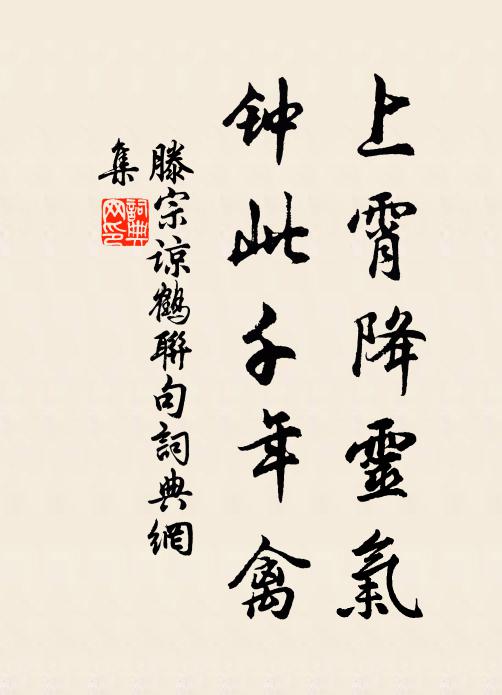 上霄降靈氣
钟此千年禽
滕宗谅鶴聯句詞典網
集
詞典
网印